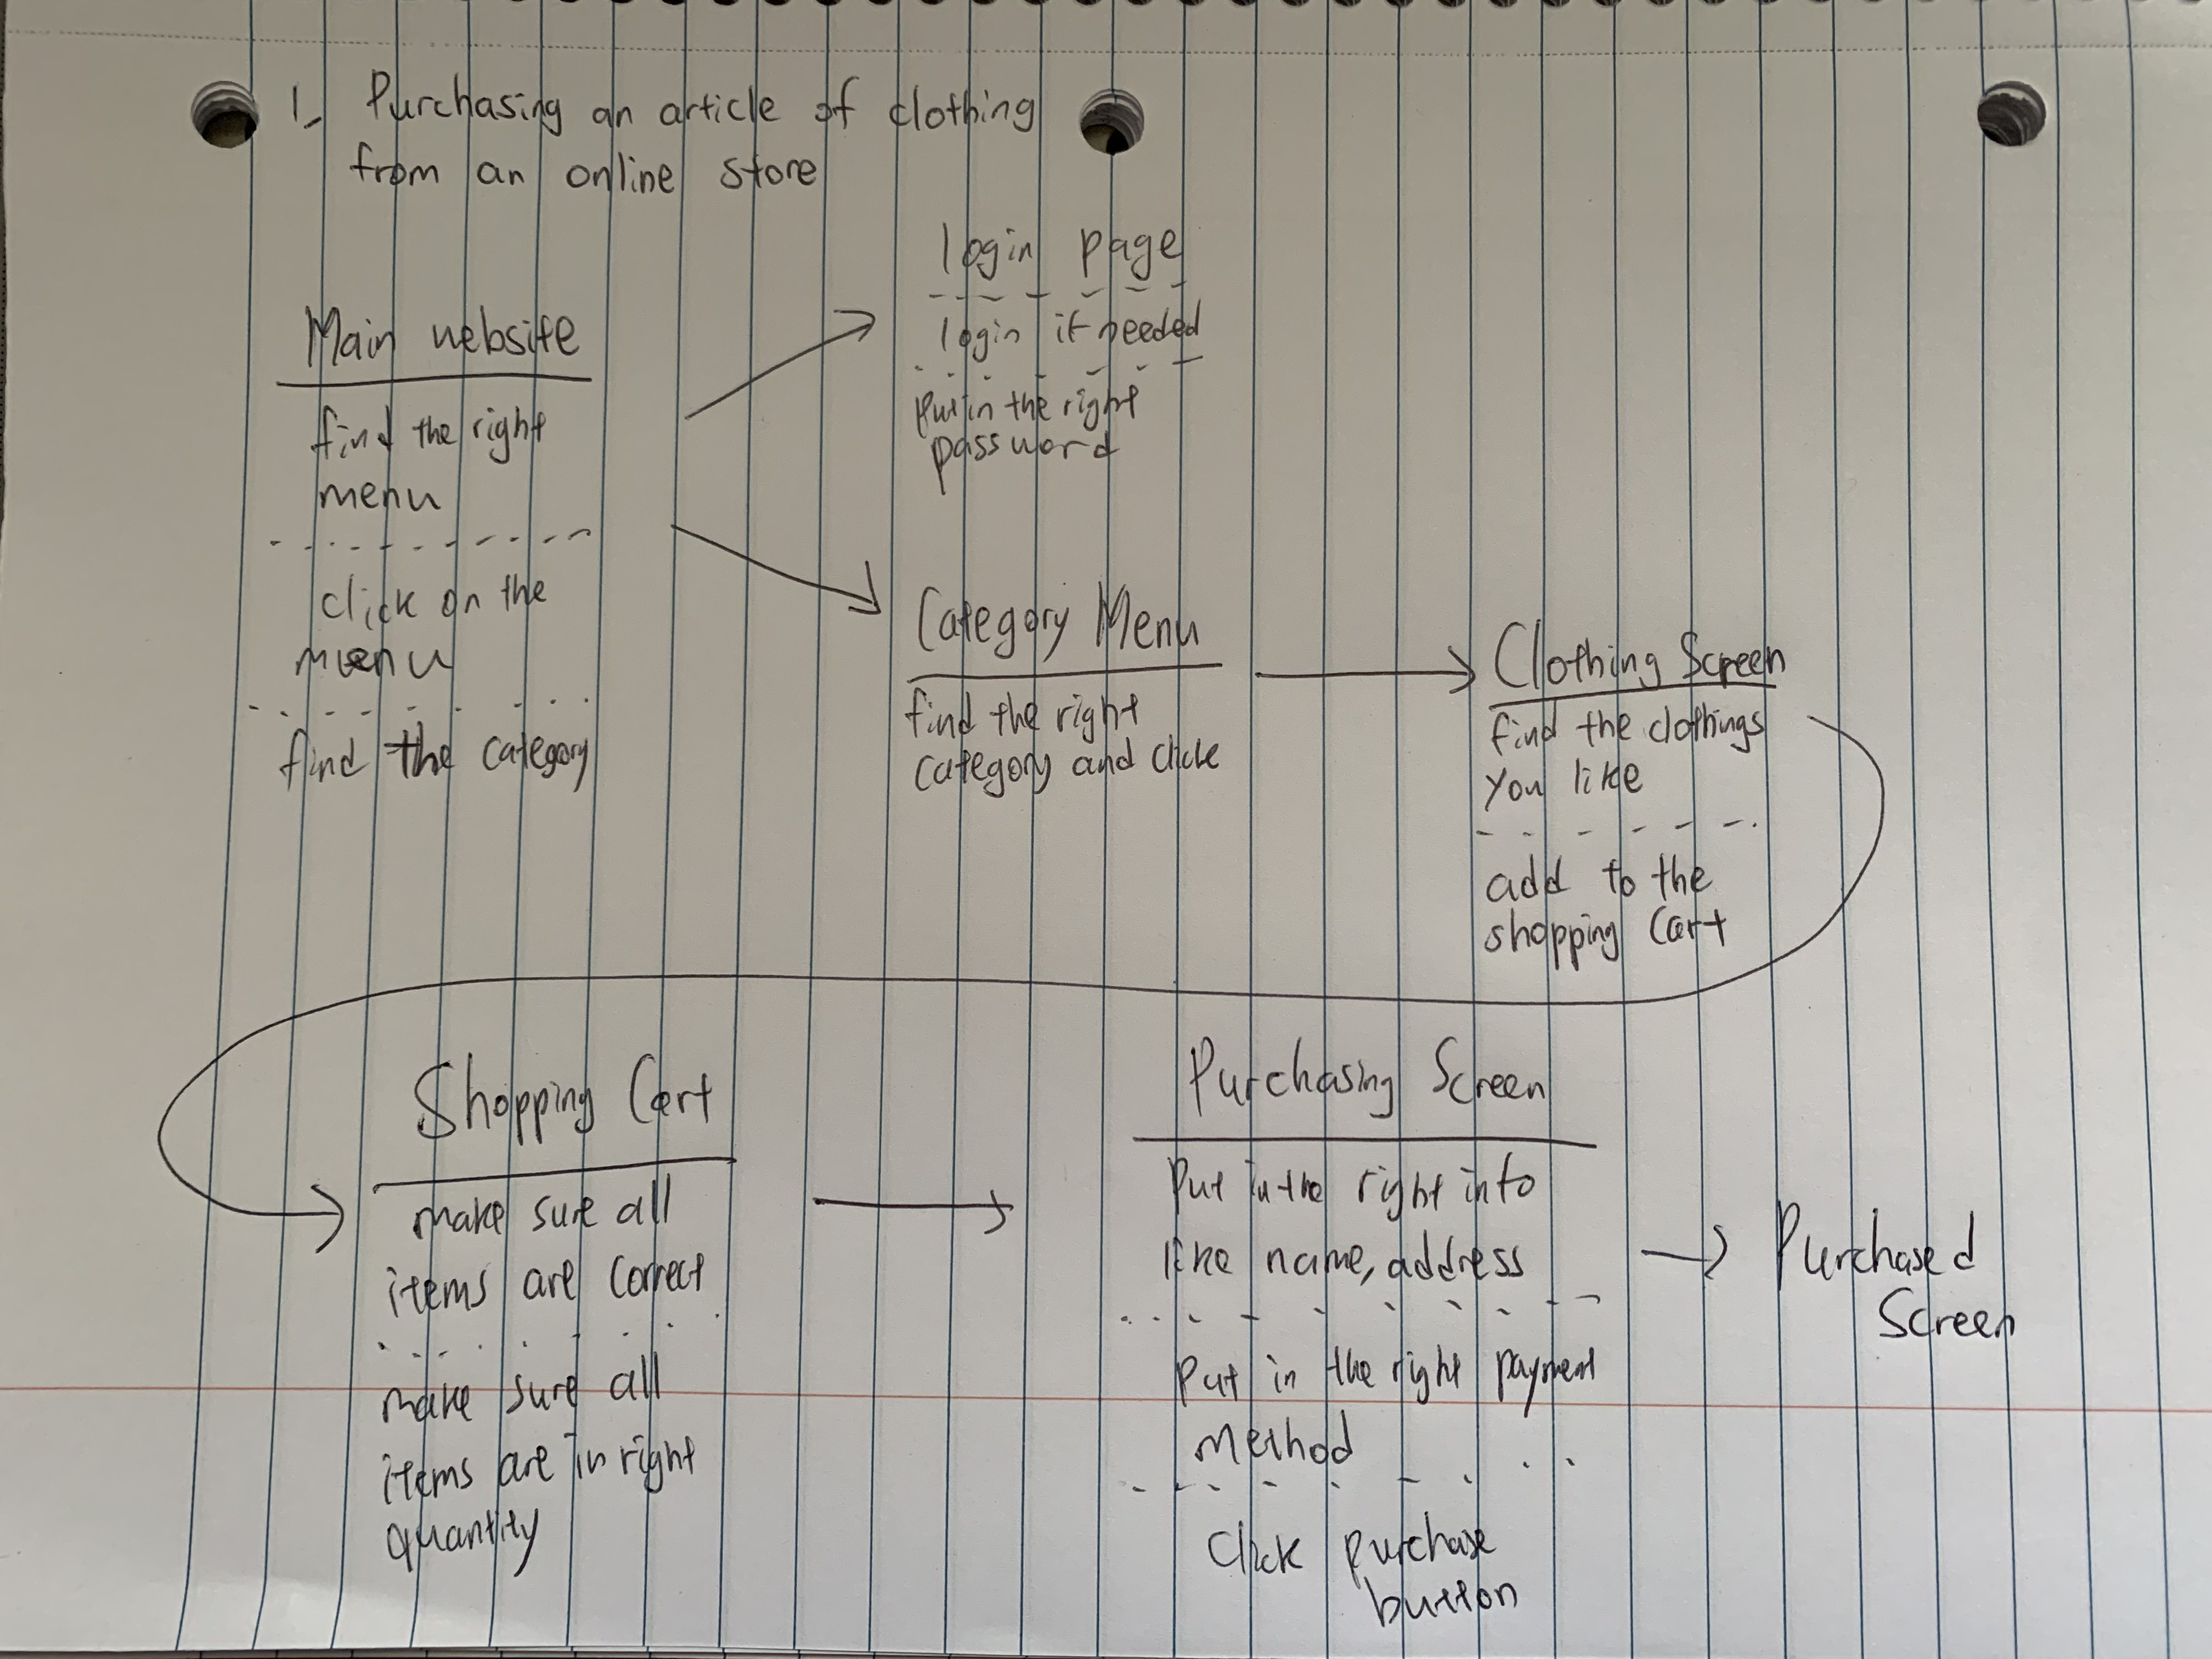 1. Purchasing an article of clothing
from an online store
Main website
find the right
menu
click on the
menu
find the category
login page
login if needed
Put in the right
password
Category Menu
find the right
category and click
Clothing Screen
find the clothings
you like
add to the
shopping cart
Shopping Cart
make sure all
items are correct
make sure all
items are in right
quantity
Purchasing Screen
Put in the right info
like name, address
Put in the right payment
method
Click purchase
button
Purchased
Screen